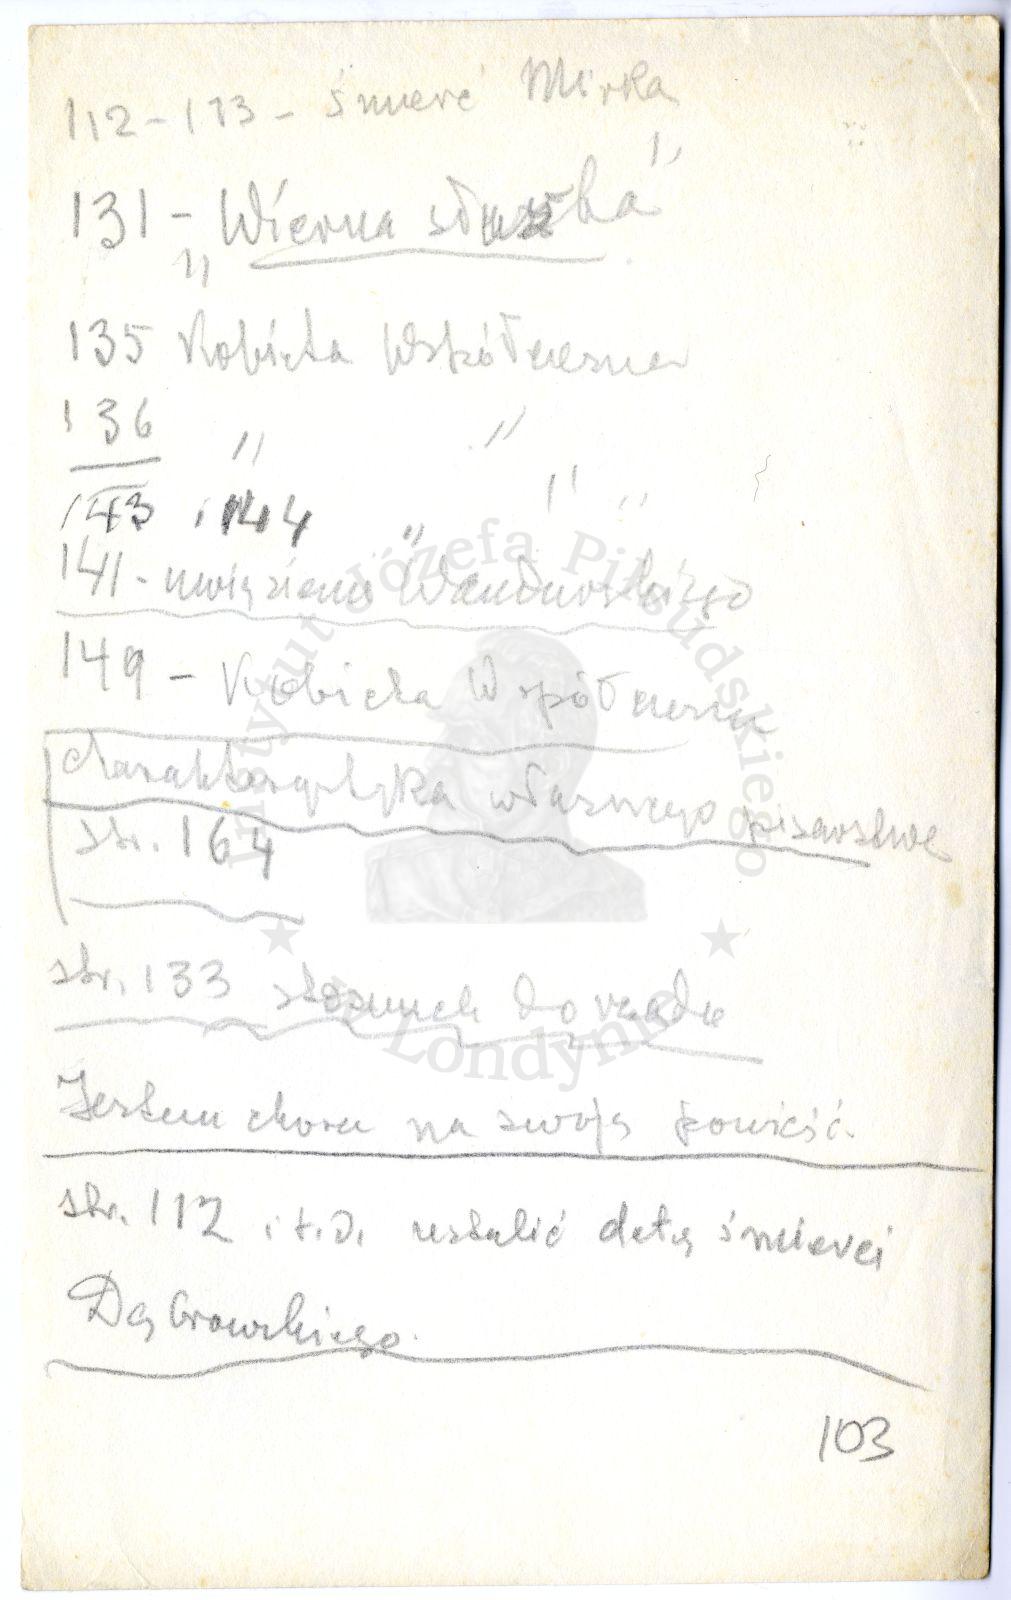 112-113 - śmierć Mirka
131 - „Wierna służka"
135 Kobieta Współczesna
136 " "
143 i 144 " " "
141 - uwięzienie
149 - Kobieta Współczesn
charakterystyka własnego pisarstwa
str. 164
str. 133 stosunek do rządu
Jestem chora na swoją powieść.
str. 112 i t.d. ustalić datę śmierci
Dąbrowskiego.
103
Instytut Józefa Piłsudskiego
w Londynie